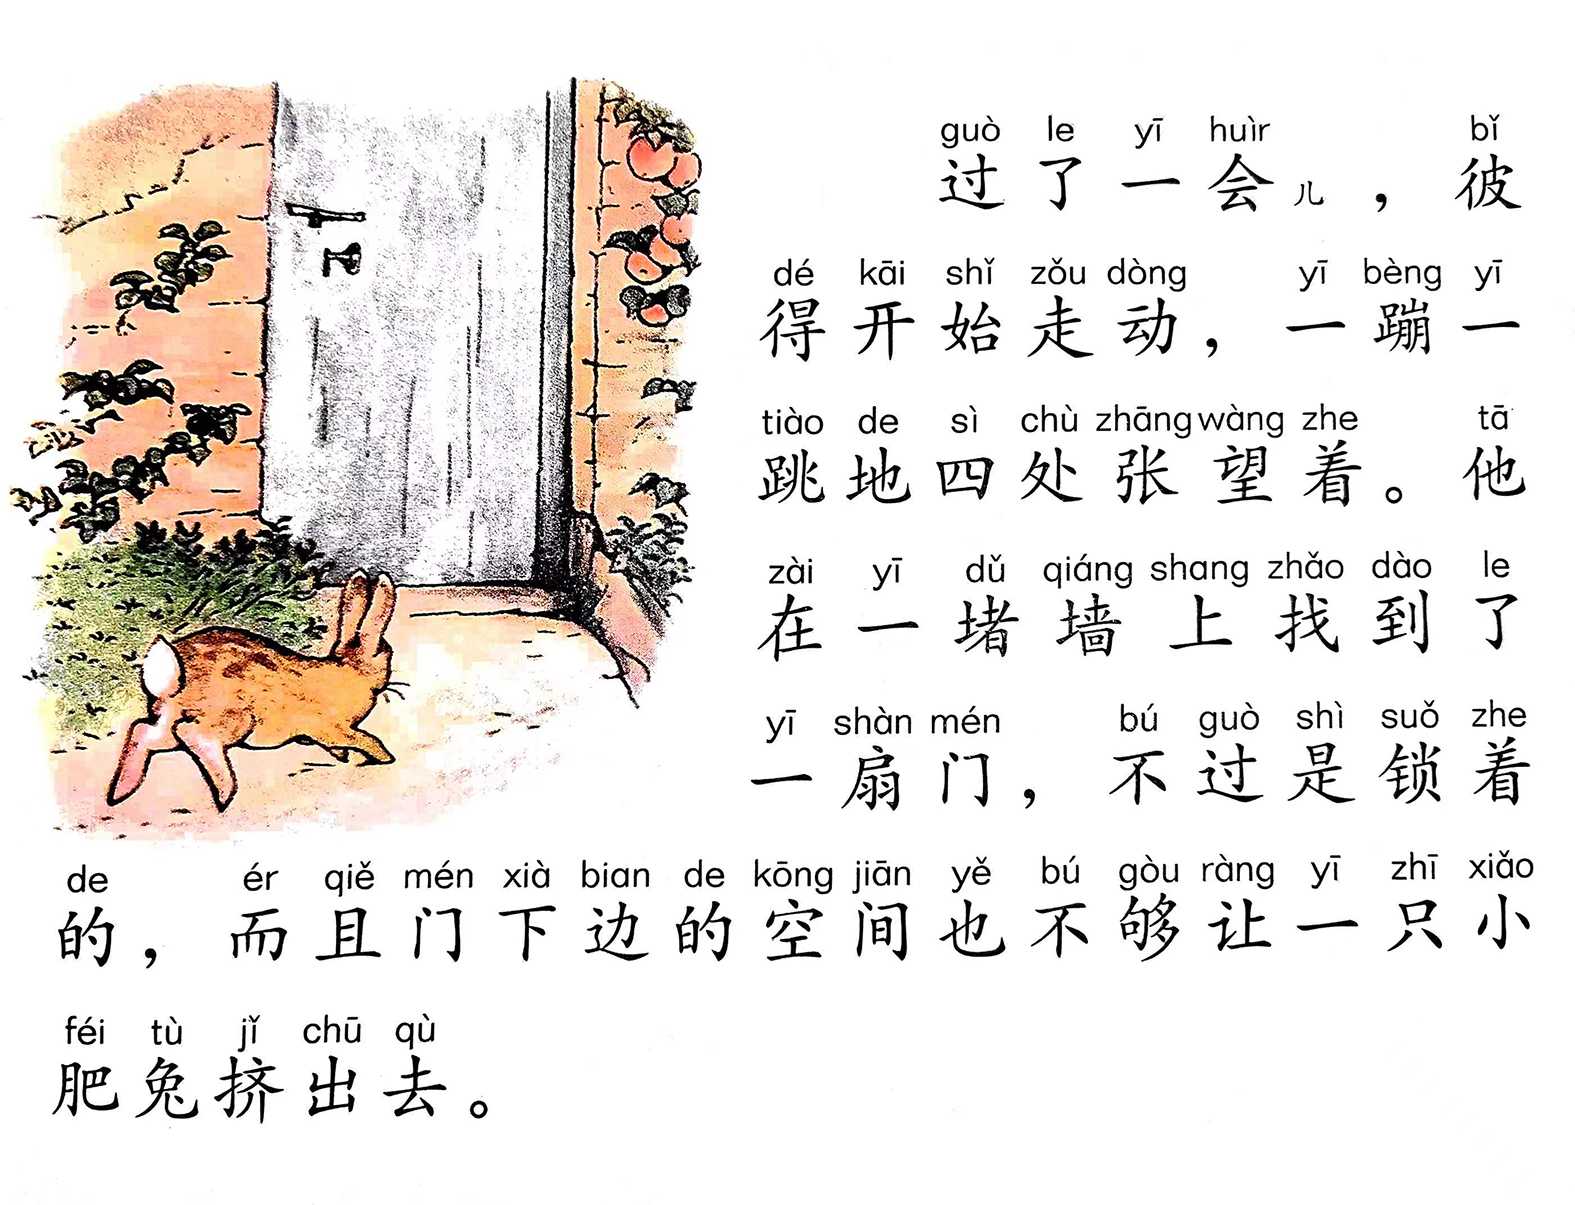 guò le yī huìr bǐ
过了一会儿，彼
dé kāi shǐ zǒu dòng yī bèng yī
得开始走动，一蹦一
tiào de sì chù zhāng wàng zhe tā
跳地四处张望着。他
zài yī dǔ qiáng shang zhǎo dào le
在一堵墙上找到了
yī shàn mén bú guò shì suǒ zhe
一扇门，不过是锁着
de ér qiě mén xià bian de kōng jiān yě bú gòu ràng yī zhī xiǎo
的，而且门下边的空间也不够让一只小
féi tù jǐ chū qù
肥兔挤出去。